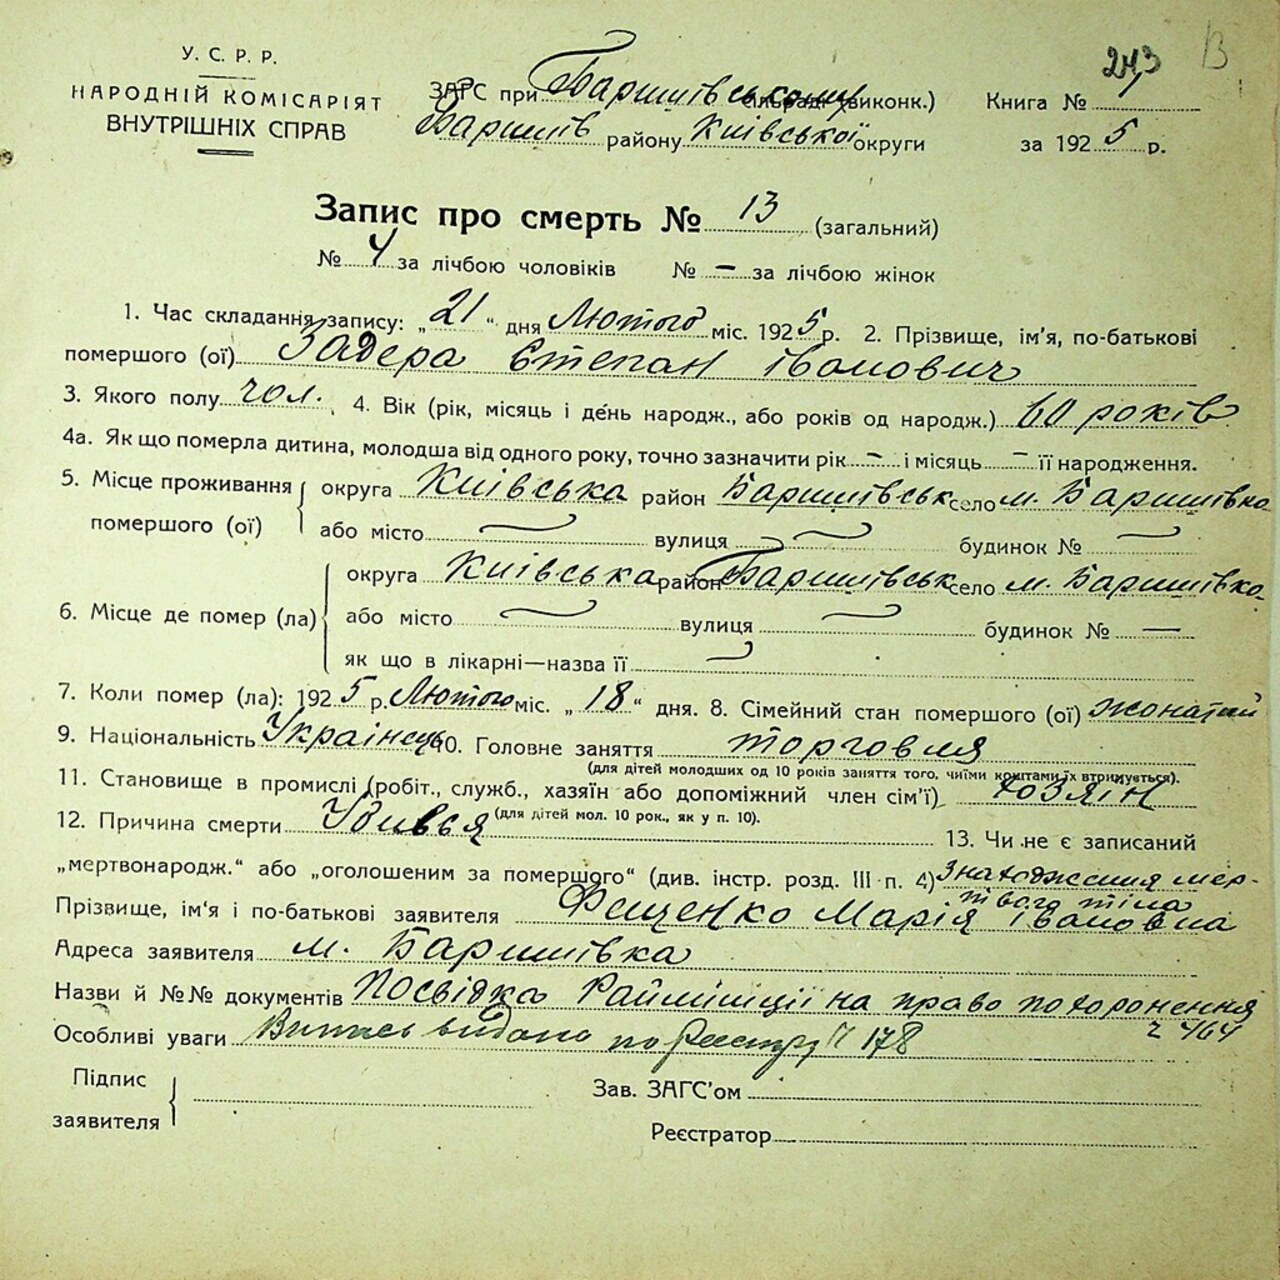 У. С. Р. Р.
НАРОДНІЙ КОМІСАРІЯТ
ВНУТРІШНІХ СПРАВ
ЗАГС при Баришівському сільраді (виконк.)
Баришів району Київської округи
243
Книга №
за 1925 р.
13
Запис про смерть № 13 (загальний)
№ 4 за лічбою чоловіків № – за лічбою жінок
1. Час складання запису: „21“ дня Лютого міс. 1925 р. 2. Прізвище, ім'я, по-батькові
помершого (ої) Задера Степан Іванович
3. Якого полу чол. 4. Вік (рік, місяць і день народж., або років од народж.) 60 років
4а. Як що померла дитина, молодша від одного року, точно зазначити рік – і місяць – її народження.
5. Місце проживання помершого (ої) округа Київська район Баришівськ село м. Баришівка
або місто вулиця будинок №
6. Місце де помер (ла) округа Київська район Баришівськ село м. Баришівка
або місто вулиця будинок № —
як що в лікарні—назва її
7. Коли помер (ла): 1925 р. Лютого міс. „18“ дня. 8. Сімейний стан помершого (ої) жонатий
9. Національність Українець 10. Головне заняття торговля
(для дітей молодших од 10 років заняття того, чиїми коштами їх втримується).
11. Становище в промислі (робіт., служб., хазяїн або допоміжний член сім'ї) хозяін
(для дітей мол. 10 рок., як у п. 10).
12. Причина смерти Убивья 13. Чи не є записаний
„мертвонародж.“ або „оголошеним за померщого“ (див. інстр. розд. III п. 4) Знаходження мер-
твого тіла
Прізвище, ім'я і по-батькові заявителя Фещенко Марія Івановна
Адреса заявителя м. Баришівка
Назви й №№ документів Посвідка Райміліції на право похоронення
г 464
Особливі уваги Витись видано по Реестру № 178
Підпис заявителя
Зав. ЗАГС'ом
Реєстратор